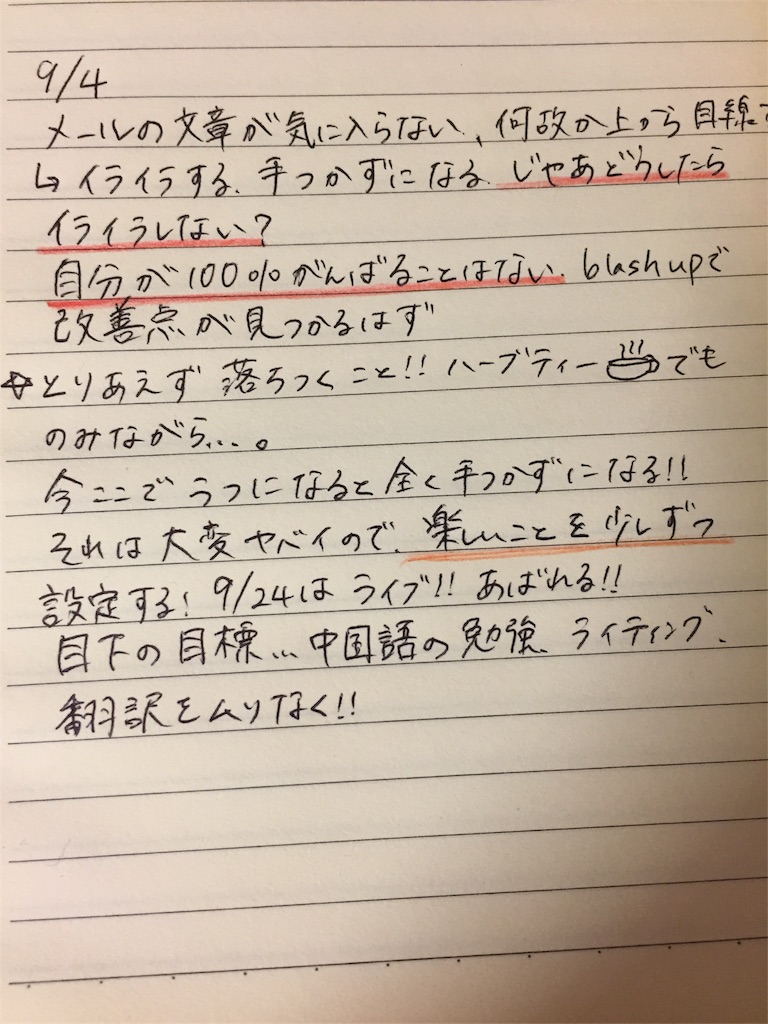 9/4
メールの文章が気に入らない、何故か上から目線
↳イライラする、手つかずになる、じゃあどうしたら
イライラしない?
自分が100%がんばることはない、blashupで
改善点が見つかるはず
とりあえず落ちつくこと!! ハーブティーでも
のみながら...。
今ここでうつになると全く手つかずになる!!
それは大変ヤバイので、楽しいことを少しずつ
設定する! 9/24はライブ!! あばれる!!
目下の目標...中国語の勉強、ライティング、
翻訳をムリなく!!